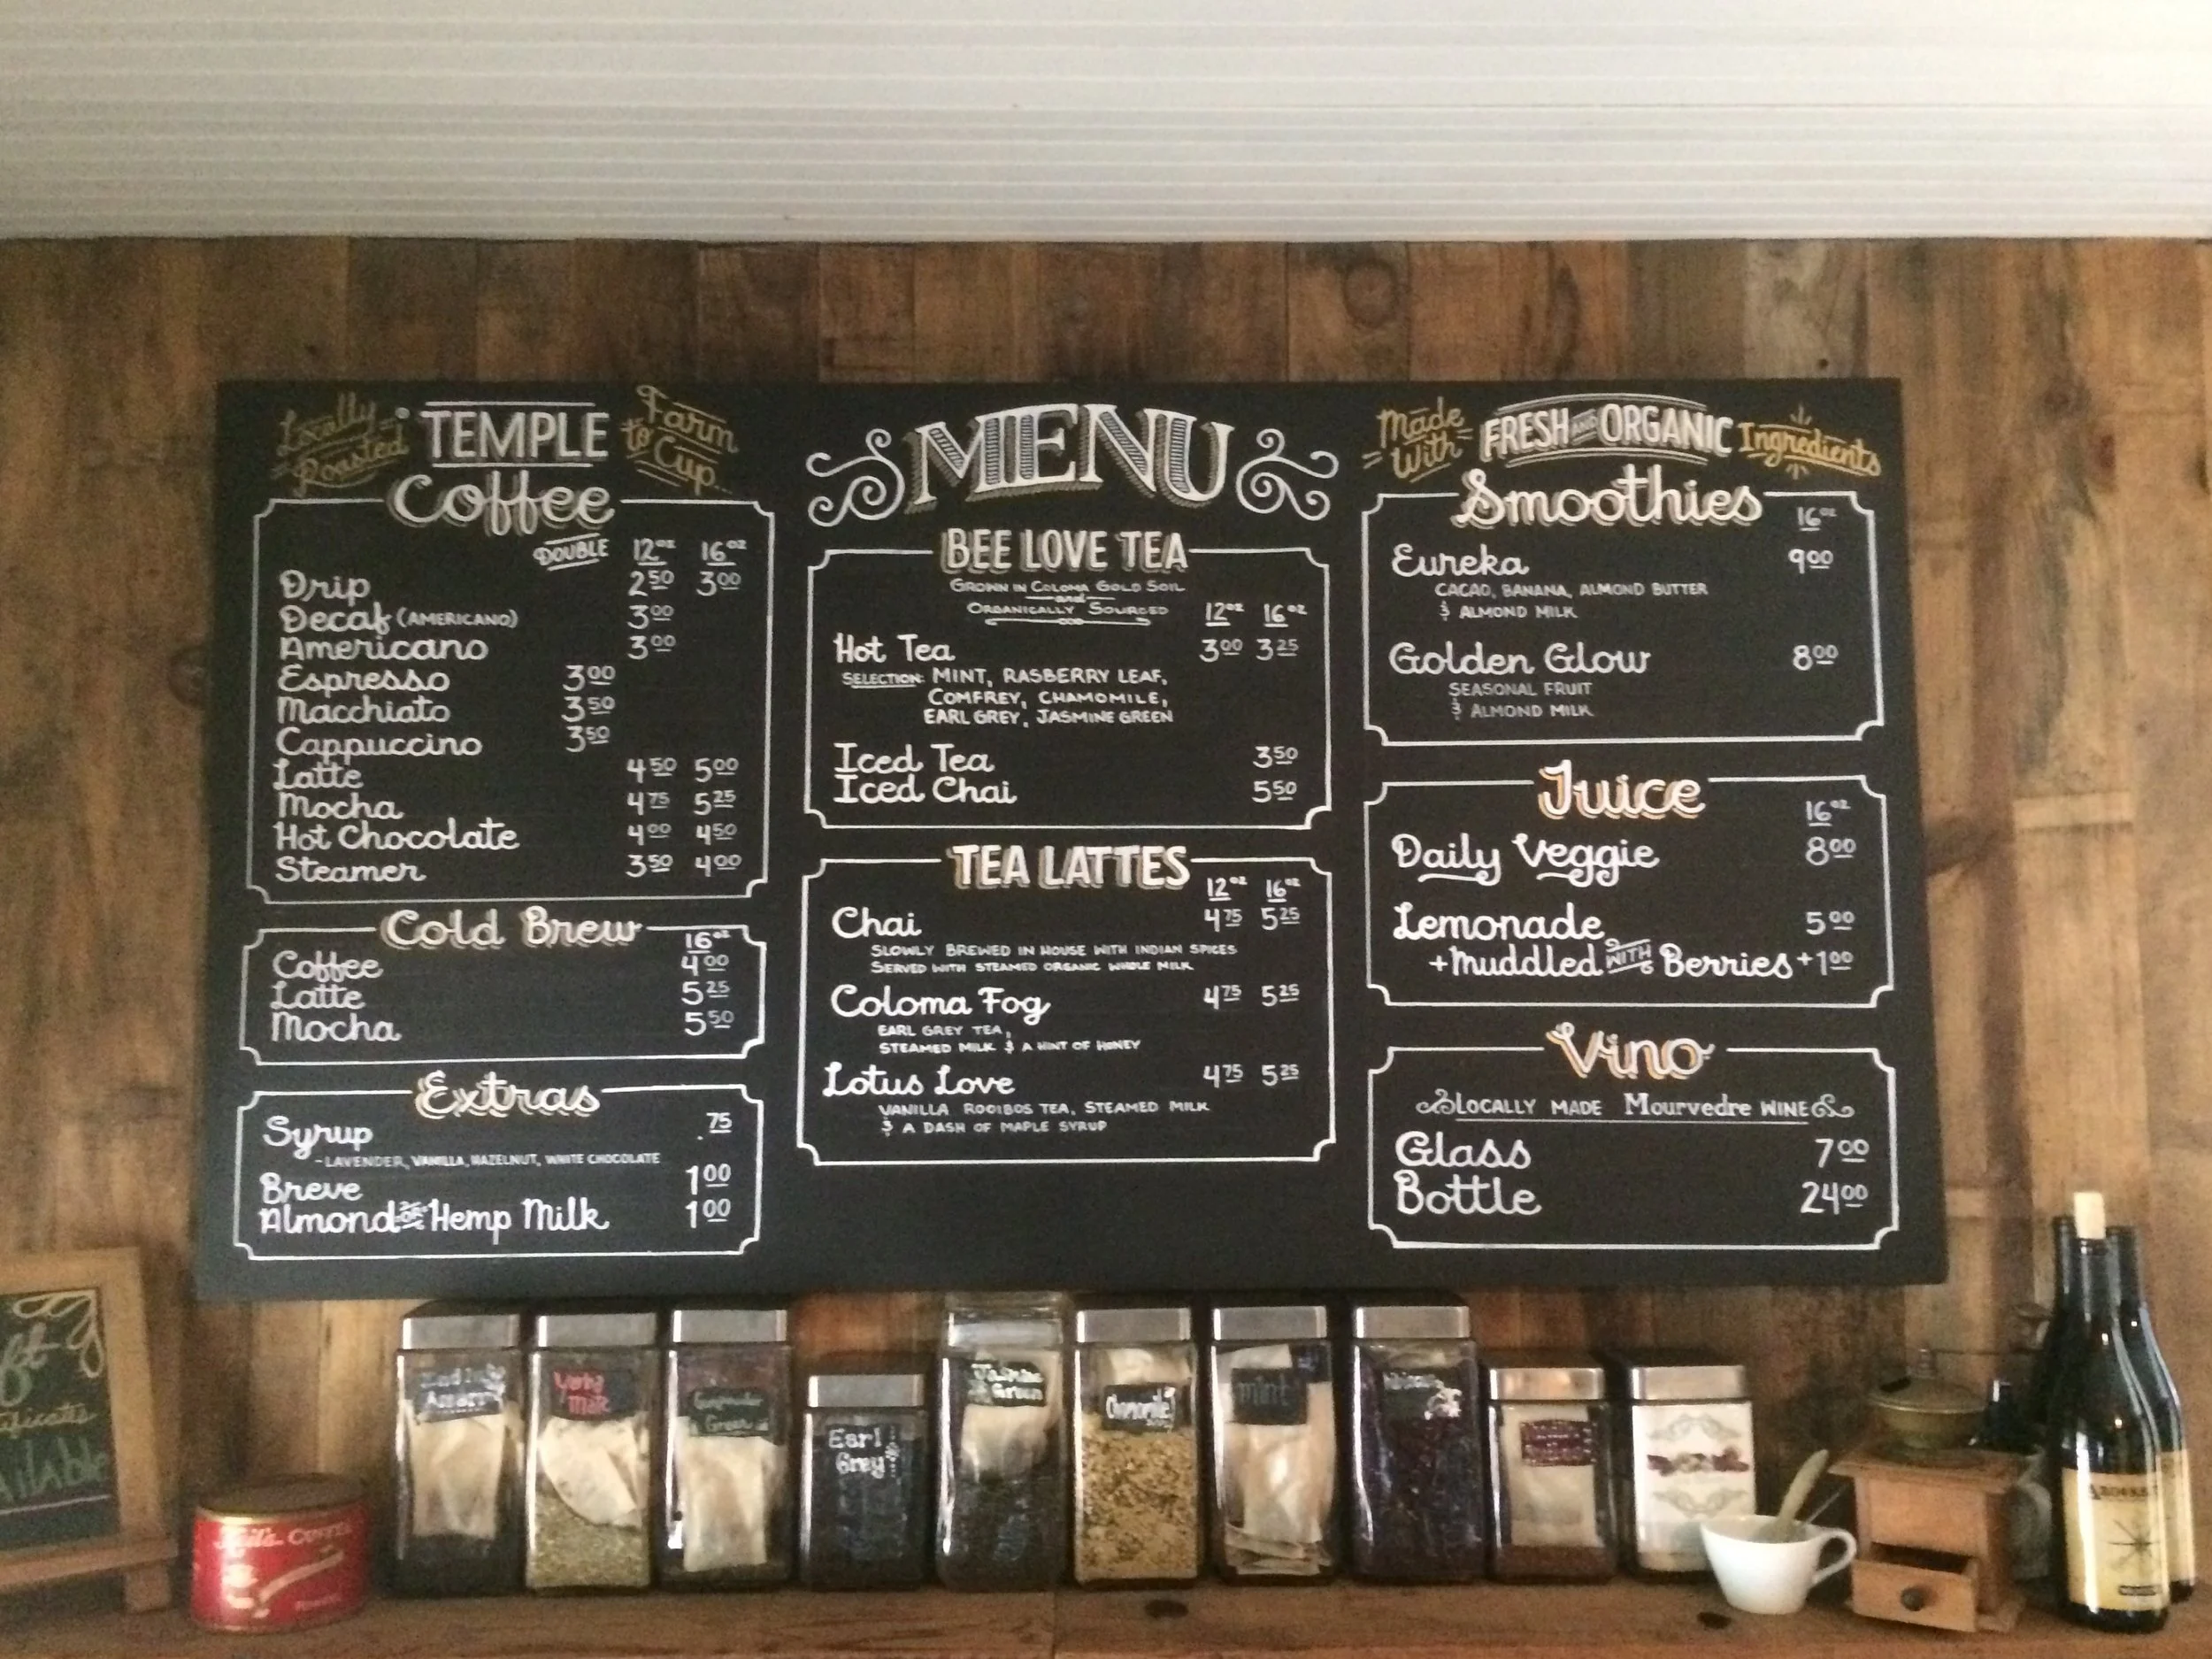 Locally Roasted
TEMPLE
Farm to Cup...
Coffee
DOUBLE 12oz 16oz
Drip 2 50 3 00
Decaf (AMERICANO) 3 00
Americano 3 00
Espresso 3 00
Macchiato 3 50
Cappuccino 3 50
Latte 4 50 5 00
Mocha 4 75 5 25
Hot Chocolate 4 00 4 50
Steamer 3 50 4 00
Cold Brew
16oz
Coffee 4 00
Latte 5 25
Mocha 5 50
Extras
Syrup .75
-LAVENDER, VANILLA, HAZELNUT, WHITE CHOCOLATE
Breve 1 00
Almond OR Hemp Milk 1 00
MENU
BEE LOVE TEA
GROWN IN COLOMA GOLD SOIL
and
ORGANICALLY SOURCED
12oz 16oz
Hot Tea 3 00 3 25
SELECTION: MINT, RASBERRY LEAF,
COMFREY, CHAMOMILE,
EARL GREY, JASMINE GREEN
Iced Tea 3 50
Iced Chai 5 50
TEA LATTES
12oz 16oz
Chai 4 75 5 25
SLOWLY BREWED IN HOUSE WITH INDIAN SPICES
SERVED WITH STEAMED ORGANIC WHOLE MILK
Coloma Fog 4 75 5 25
EARL GREY TEA,
STEAMED MILK & A HINT OF HONEY
Lotus Love 4 75 5 25
VANILLA ROOIBOS TEA, STEAMED MILK
& A DASH OF MAPLE SYRUP
Made With
FRESH AND ORGANIC
Ingredients
Smoothies
16oz
Eureka 9 00
CACAO, BANANA, ALMOND BUTTER
& ALMOND MILK
Golden Glow 8 00
SEASONAL FRUIT
& ALMOND MILK
Juice
16oz
Daily Veggie 8 00
Lemonade 5 00
+Muddled WITH Berries +1 00
Vino
LOCALLY MADE Mourvedre WINE
Glass 7 00
Bottle 24 00
Green
Earl
Grey
Jasmine
Green
Chamomile
mint